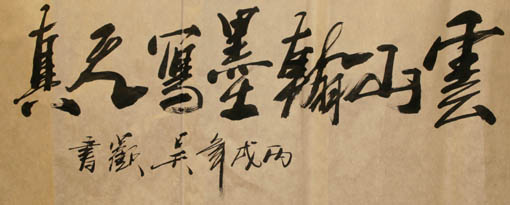 雲山翰墨寫天真
丙戌年吴歡書